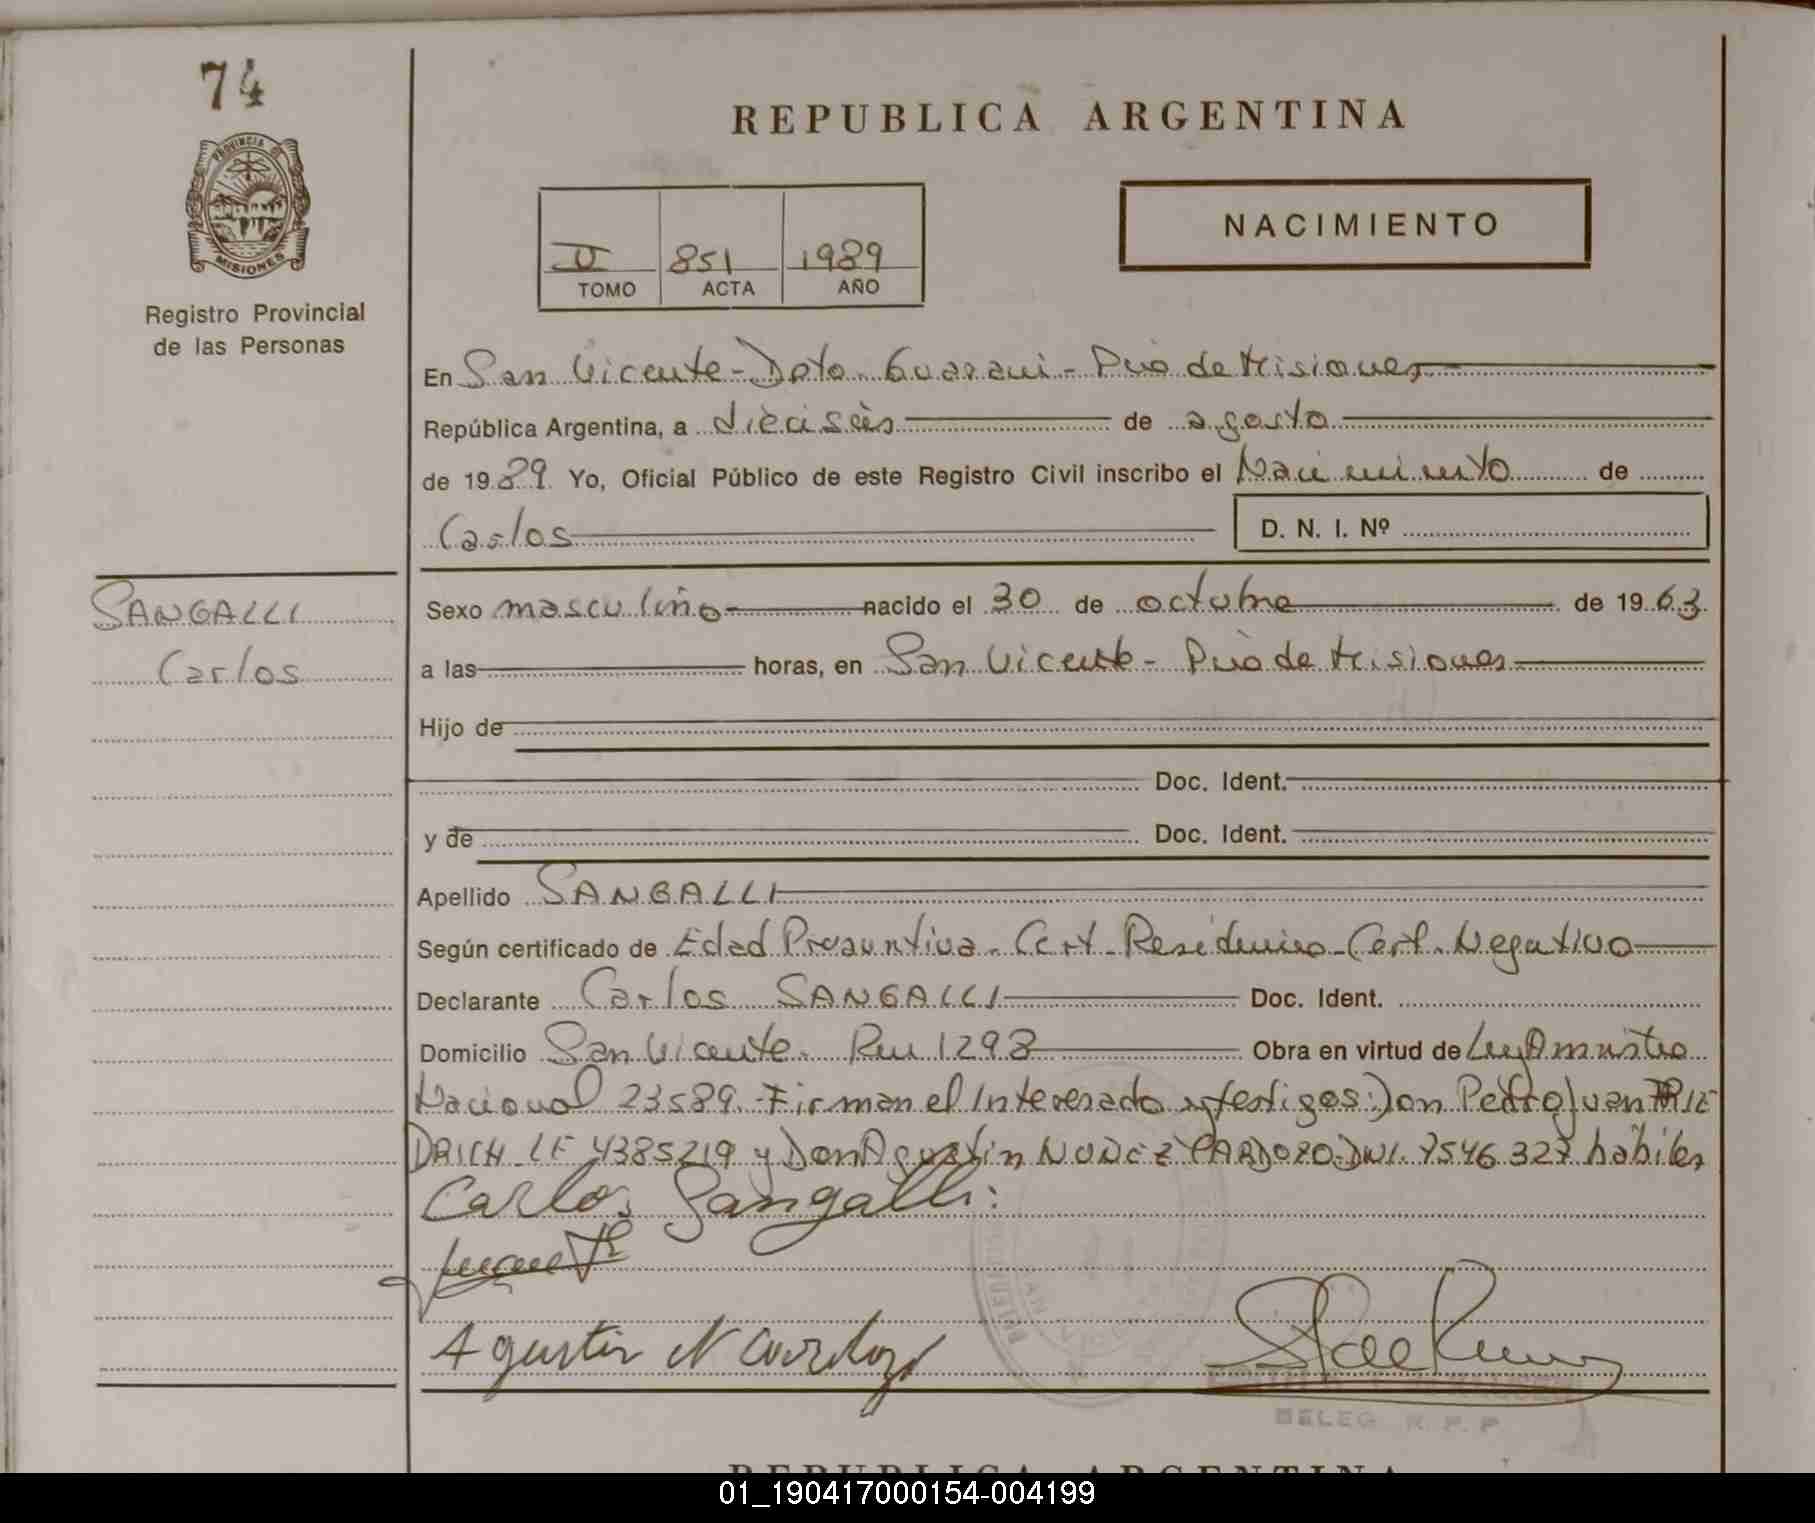 74
PROVINCIA DE
MISIONES
Registro Provincial
de las Personas
REPUBLICA ARGENTINA
II 851 1989
TOMO ACTA AÑO
NACIMIENTO
En San Vicente - Dpto. Guarani - Pvia de Misiones
República Argentina, a dieciseis de agosto
de 1989 Yo, Oficial Público de este Registro Civil inscribo el Nacimiento de
Carlos D. N. I. Nº
SANGALLI
Carlos
Sexo masculino nacido el 30 de octubre de 1963
a las horas, en San Vicente - Pvia de Misiones
Hijo de
Doc. Ident.
y de Doc. Ident.
Apellido SANGALLI
Según certificado de Edad Presuntiva - Cert - Residencia - Cert. Negativo
Declarante Carlos SANGALLI Doc. Ident.
Domicilio San Vicente. Ruu 1298 Obra en virtud de Ley Amnistia
Nacional 23589. Firman el Interesado y testigos: Don Pedro Juan FRIE
DRICH LE 4385219 y Don Agustin NUÑEZ CARDOZO DNI. 7546 327 habiles
Carlos Sangalli
Agustin N Cardozo
DELEG. R. P. P
REPUBLICA ARGENTINA
01_190417000154-004199